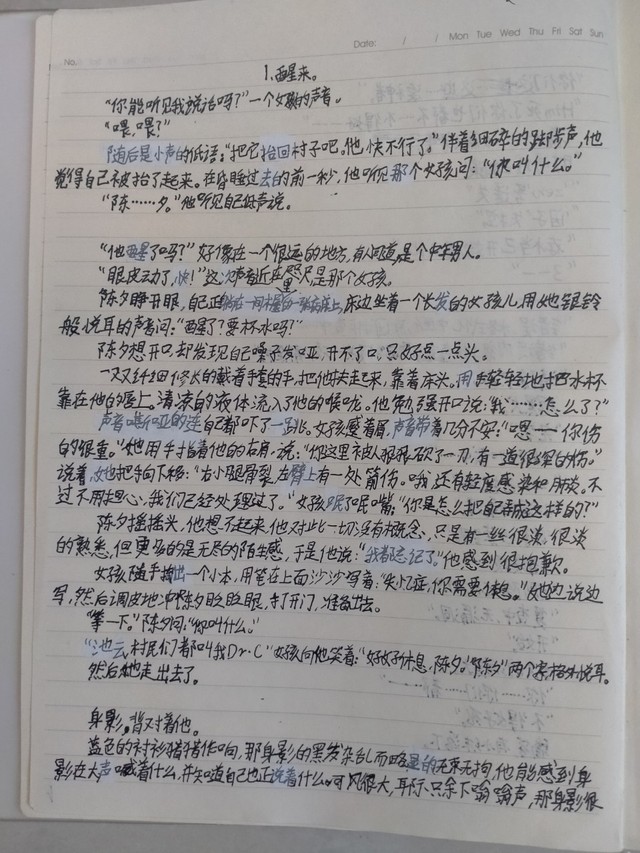 No.
Date: / / Mon Tue Wed Thu Fri Sat Sun
1.醒来。
“你能听见我说话吗?”一个女孩的声音。
“喂,喂?”
随后是小声的低语:“把它抬回村子吧。他,快不行了。”伴着细碎的脚步声,他
觉得自己被抬了起来。在昏睡过去的前一秒,他听见那个女孩问:“你叫什么。”
“陈……夕。”他听见自己低声说。
“他醒了吗?”好像在一个很远的地方,有人问道,是个中年男人。
“眼皮动了,快!”这次声音近在咫尺是那个女孩。
陈夕睁开眼,自己正躺在一间木屋的一张病床上,床边坐着一个长发的女孩儿,用她银铃
般悦耳的声音问:“醒了?要杯水吗?”
陈夕想开口,却发现自己嗓子发哑,开不了口。只好点一点头。
一双纤细修长的戴着手套的手,把他扶起来,靠着床头。用手轻轻地把水杯
靠在他的唇上。清凉的液体流入了他的喉咙。他勉强开口说:“我……怎么了?”
声音嘶哑的连自己都吓了一跳。女孩蹙着眉,声音带着几分不安:“嗯——你伤
的很重。”她用手指着他的右肩,说:“你这里被人狠狠砍了一刀,有一道很深的伤。”
说着,她把手向下移:“右小腿骨裂,左臂上有一处箭伤。哦,还有轻度感染和肺炎。不
过不用担心,我们已经处理过了。”女孩抿了抿嘴,“你是怎么把自己弄成这样的?”
陈夕摇摇头,他想不起来,他对此一切没有概念,只是有一丝很淡,很淡
的熟悉,但更多的是无尽的陌生感,于是他说:“我都忘记了。”他感到很抱歉。
女孩随手掏出一个小本,用笔在上面沙沙写着:“失忆症,你需要休息。”她边说边
写,然后调皮地冲陈夕眨眨眼,打开门,准备出去。
“等一下。”陈夕问:“你叫什么。”
“池云,村民们都叫我Dr.C”女孩向他笑着:“好好休息,陈夕。”“陈夕”两个字格外悦耳。
然后她走出去了。
身影。背对着他。
蓝色的衬衫猎猎作响,那身影的黑发杂乱而略显的无束无拘,他能感到身
影在大声喊着什么,并知道自己也正说着什么。可风很大,耳中只余下嗡嗡声,那身影很